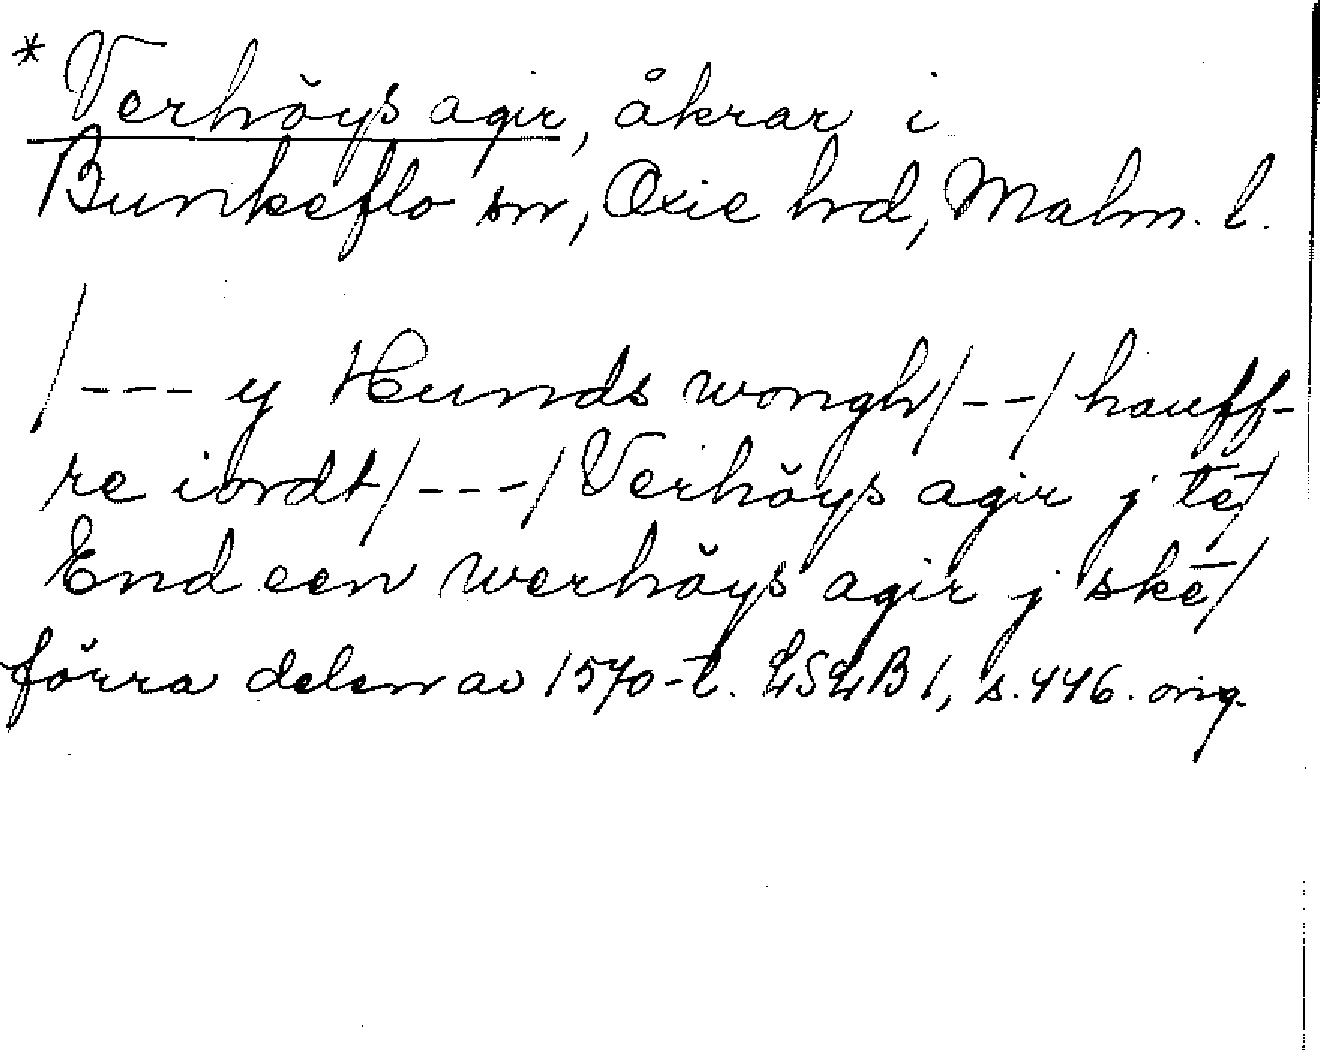 * Verhŏys agir, åkrar i
Bunkeflo sn, Oxie hrd, Malm. l.
/--- y Hunds wongh/--/hauff-
re iordt/---/Verhŏys agir j tē/
End een werhŏys agir j skē/
förra delen av 1570-t. LSLB 1, s. 446. orig.